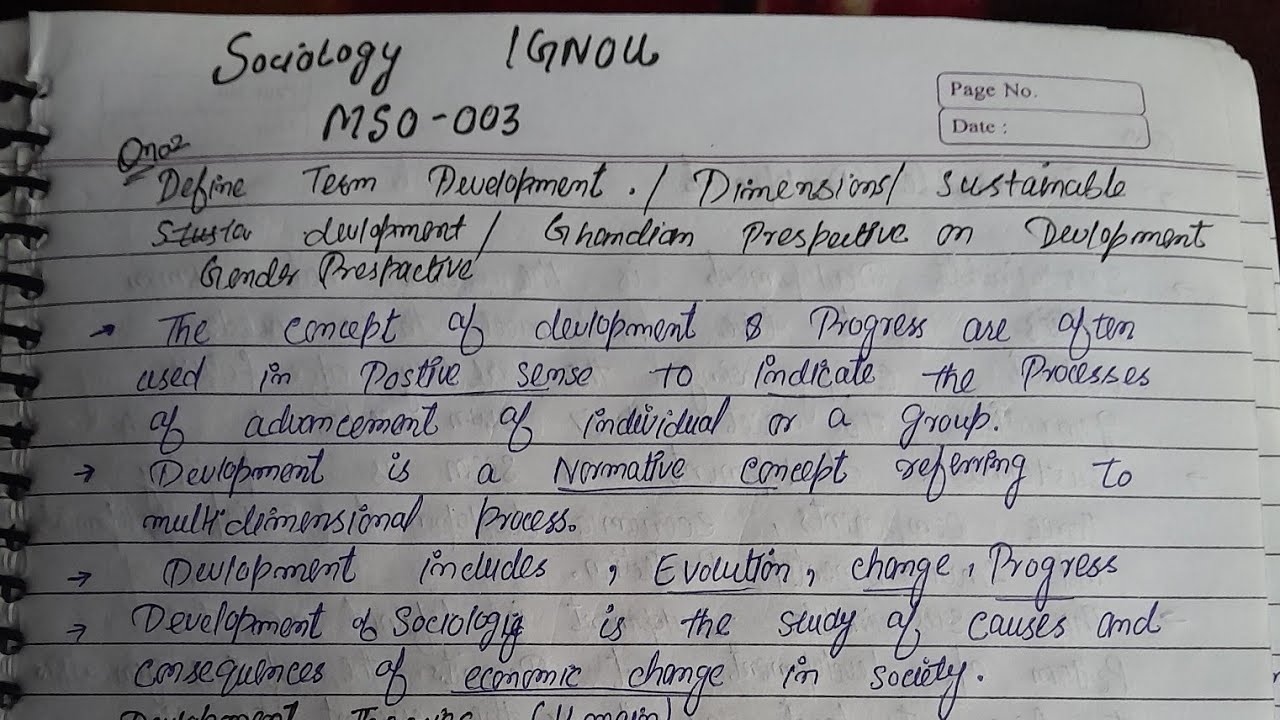 Sociology IGNOU
MSO-003
Page No.
Date :
Qno2
Define Term Development. / Dimensions / Sustainable
Susta devlopment / Ghandian Prespective on Devlopment
Gender Prespactive
→ The concept of devlopment & Progress are often
used in Postive sense to indicate the Processes
of advancement of individual or a group.
→ Devlopment is a Normative concept referring to
multidimensional process.
→ Devlopment includes , Evolution, change, Progress
→ Development of Sociology is the study of causes and
consequences of economic change in society.
Development (4 main)